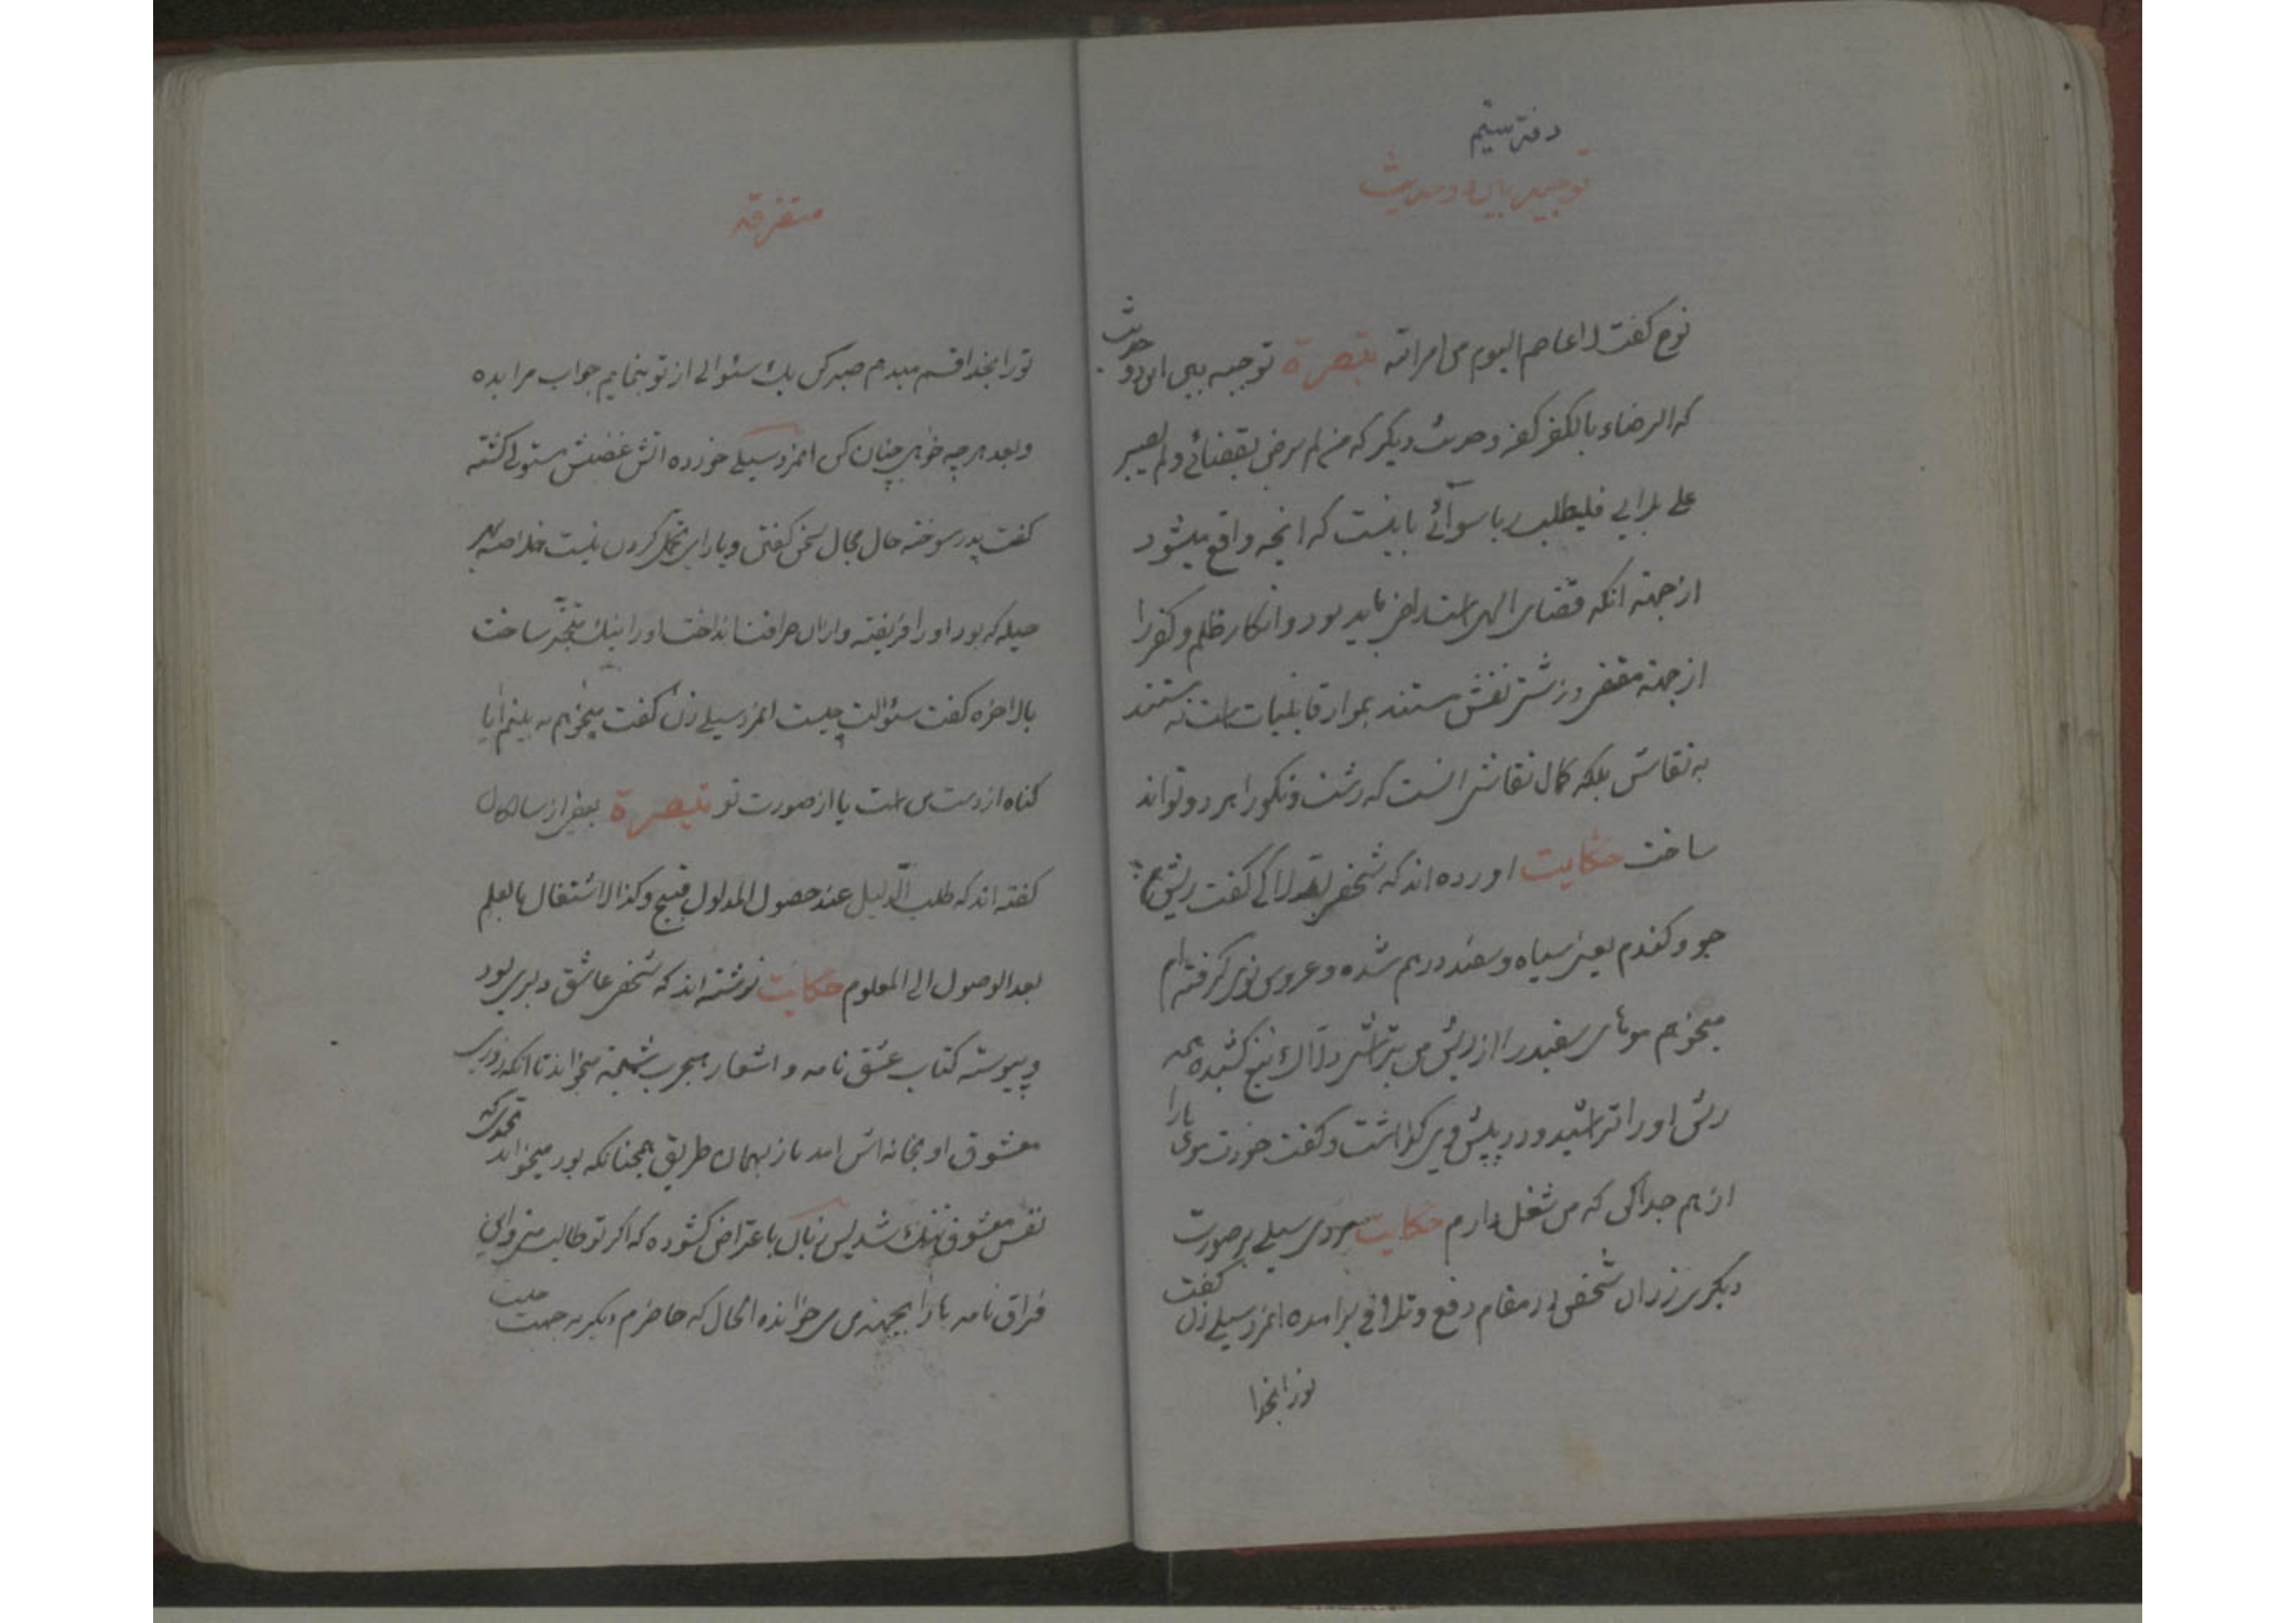 دفتر سیم
توجیه بیان دو حدیث
نوح گفت لا عاصم الیوم من امر الله تبصرة توجیه بین این دو حدیث
که الرضاء بالکفر کفر و حدیث دیگر که من لم یرض بقضائی و لم یصبر
علی بلائی فلیطلب ربا سوآئی باینست که انچه واقع میشود
از جهته انکه قضای الهی است راضی باید بود و انکار ظلم و کفر را
از جهته مقضی و زشتی نقش مستند بموارد قابلیات است نه مستند
به نقاش بلکه کمال نقاش انست که زشت و نکو را هر دو تواند
ساخت حکایت اورده اند که شخصی بدلاکی گفت ریش
جو و کندم یعنی سیاه و سفید درهم شده و عروس نوی گرفته ام
میخواهم موهای سفید را از ریش من بتراشی دلاک تیغ کشیده همه
ریش او را تراشید و در پیش وی گذاشت و گفت خودت موی ها را
از هم جدا کن که من شغل دارم حکایت مردی سیلی بر صورت
دیگری زد ان شخص در مقام دفع و تلافی برامده انمرد سیلی زن گفت
تو را بخدا
متفرقه
تو را بخدا قسم میدهم صبر کن یک سئوالی از تو بنمایم جواب مرا بده
و بعد هر چه خواهی چنان کن انمرد سیلی خورده اتش غضبش مستولی گشته
گفت پدر سوخته حال مجال سخن گفتن و یارای تحمل کردن نیست خلاصه بهر
حیله که بود او را فریفته و ازان حرافت انداخت او را اینک متحیّر ساخت
بالاخره گفت سئوالت چیست انمرد سیلی زن گفت میخواهم به بینم ایا
گناه از دست من است یا از صورت تو تبصرة بعضی از سالکان
گفته اند که طلب الدّلیل عند حصول المدلول قبیح و کذا الاشتغال بالعلم
بعد الوصول الی المعلوم حکایت نوشته اند که شخصی عاشق دبری بود
و پیوسته کتاب عشق نامه و اشعار هجریه میخواند تا انکه روزی
معشوق او بخانه اش امد باز بهمان طریق همچنانکه بود میخواند
نفس معشوق تنک شد پس زبان باعتراض گشوده که اگر تو طالب منی و این
فراق نامه ها را بجهة من می خوانده الحال که حاضرم دیگر به جهت چیست